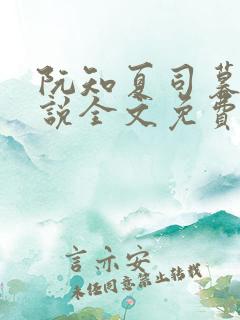 阮知夏司暮
說全文免費
言亦安
未经同意禁止转载